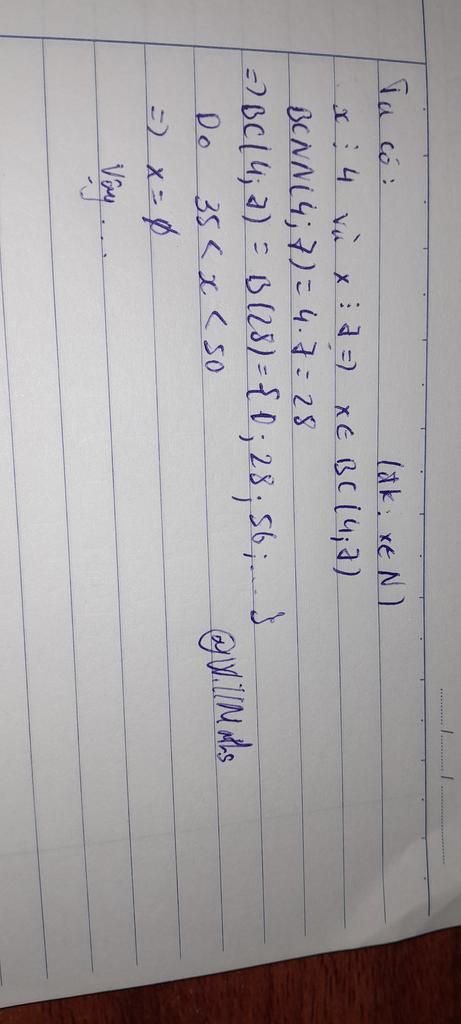 Ta có: (đk: x ∈ N)
x ⋮ 4 và x ⋮ 7 => x ∈ BC(4;7)
BCNN(4;7) = 4.7 = 28
=> BC(4;7) = B(28) = {0; 28; 56; ...}
Do 35 < x < 50
=> x = ∅
Vậy...